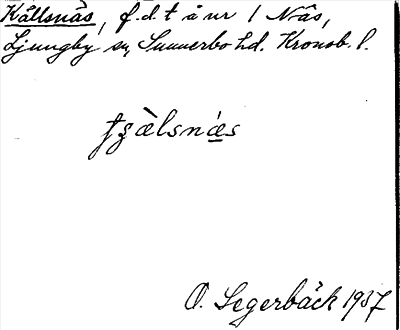 Källsnäs, f.d. t å nr 1 Näs,
Ljungby sn, Sunnerbo hd. Kronob. l.
tʂæ̀lsnæ̀s
O. Segerbäck 1937